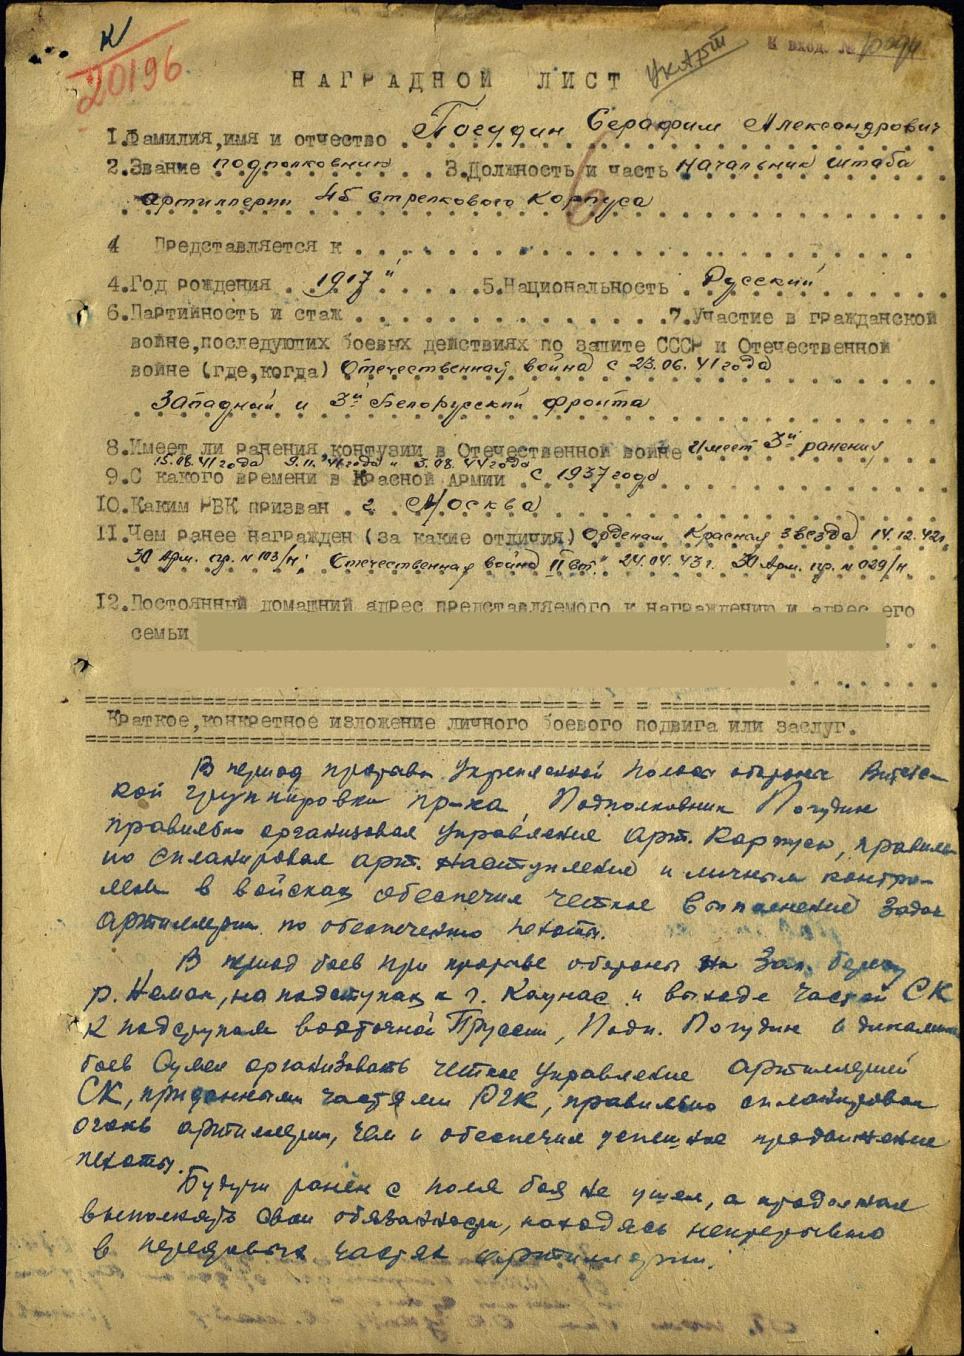 К
20196
К вход. №
НАГРАДНОЙ ЛИСТ
1.Фамилия,имя и отчество Погудин Серафим Александрович
2.Звание подполковник 3.Должность и часть Начальник штаба
артиллерии 45 стрелкового корпуса
4 Представляется к
4.Год рождения 1917 5.Национальность Русский
6.Партийность и стаж 7.Участие в гражданской
войне,последующих боевых действиях по защите СССР и Отечественной
войне (где,когда) Отечественная война с 23.06.41 года
Западный и 3й Белорусский фронта
8.Имеет ли ранения контузии в Отечественной войне Имеет 3й ранения
15.08.41 года 9.11.41 года 3.08.44 года
9.С какого времени в Красной Армии с 1937 года
10.Каким РВК призван г. Москва
11.Чем ранее награжден (за какие отличия) Орденом Красная звезда 14.12.42г.
30 Арм. пр. № 103/н; Отечественная война II ст. 24.04.43г. 30 Арм. пр. № 029/н
12.Постоянный домашний адрес представляемого к награждению и адрес его
семьи
Краткое,конкретное изложение личного боевого подвига или заслуг.
В период прорыва укрепленной полосы обороны Витебс-
кой группировки пр-ка, Подполковник Погудин
правильно организовал управление арт. Корпуса, правиль-
но спланировал арт. наступление и личным контро-
лем в войсках обеспечил четкое выполнение задач
артиллерии по обеспечению пехоты.
В период боев при прорыве обороны на Зап. берегу
р. Неман, на подступах к г. Каунас и выходе частей СК
к подступам восточной Пруссии, Подп. Погудин в динамике
боев сумел организовать четкое управление артиллерией
СК, приданными частями РГК, правильно спланировал
огонь артиллерии, чем и обеспечил успешное продвижение
пехоты.
Будучи ранен с поля боя не ушел, а продолжал
выполнять свои обязанности, находясь непрерывно
в передовых частях артиллерии.